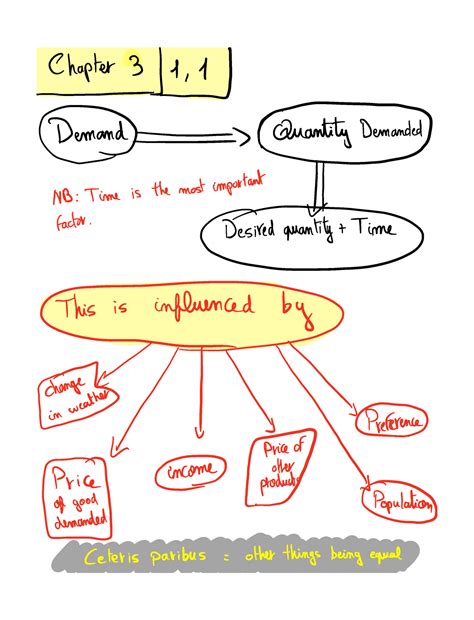 Chapter 3 | 1, 1
Demand
Quantity Demanded
NB: Time is the most important
factor.
Desired quantity + Time
This is influenced by
change
in weather
Price
of good
demanded
income
Price of
other
products
Preference
Population
Ceteris paribus = other things being equal